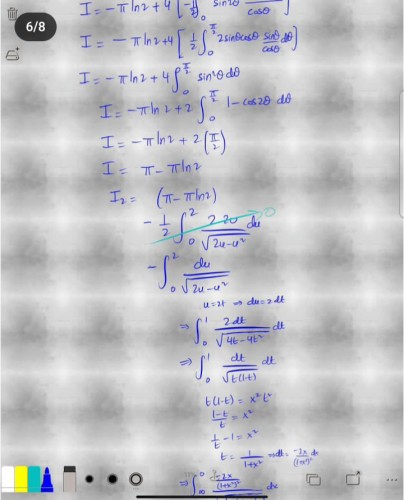 I = -π ln2 + 4 [ -1/2 ∫₀ sin2θ /cosθ ]
6/8
I = -π ln2 + 4 [ 1/2 ∫₀^{π/2} 2sinθcosθ sinθ/cosθ dθ ]
I = -π ln2 + 4 ∫₀^{π/2} sin²θ dθ
I = -π ln2 + 2 ∫₀^{π/2} 1 - cos2θ dθ
I = -π ln2 + 2 (π/2)
I = π - π ln2
I₂ = (π - π ln2)
- 1/2 ∫₀² 2-2u/√(2u-u²) du 0
- ∫₀² du/√(2u-u²)
u=2t ⇒ du=2dt
⇒ ∫₀¹ 2dt/√(4t-4t²) dt
⇒ ∫₀¹ dt/√(t(1-t)) dt
t(1-t) = x² t²
(1-t)/t = x²
1/t - 1 = x²
t = 1/(1+x²) ⇒ dt = -2x/(1+x²)² dx